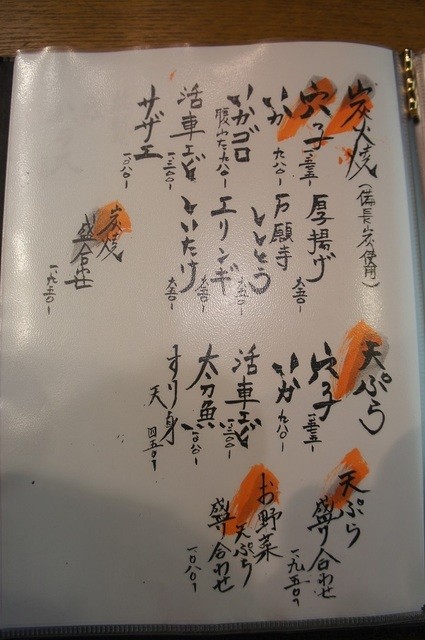 炭火焼(備長炭使用)
穴子 一三五〇-
いか 九八〇-
いかゴロ
腹わた 一九八〇-
活車エビ 一三〇〇-
サザエ 一〇八〇-
厚揚げ 六五〇-
万願寺
ししとう 六五〇-
エリンギ 六五〇-
しいたけ 六五〇-
炭焼
盛合せ
一九五〇-
天ぷら
穴子 一三五〇-
いか 九八〇-
活車エビ 一三〇〇-
太刀魚 一〇八〇-
すり身
天 四五〇-
天ぷら
盛り合わせ
一九五〇-
お野菜
天ぷら
盛り合わせ
一〇八〇-